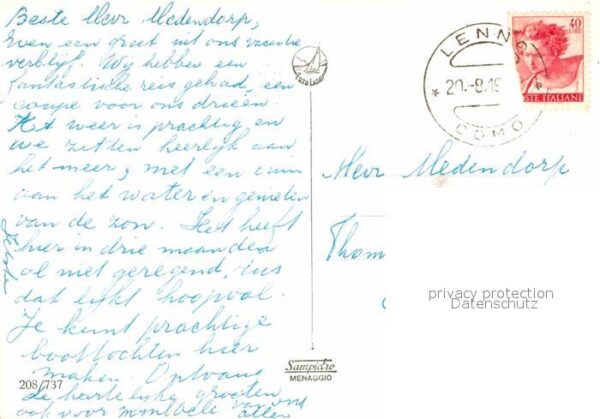 Beste Heer Medendorp,
Even een groet uit ons vacantie
verblijf. Wij hebben een
fantastische reis gehad, een
coupe voor ons drieën.
Het weer is prachtig en
we zitten heerlijk aan
het meer, met een
aan het water en genieten
van de zon. Het heeft
hier in drie maanden
al niet geregend, dus
dat lijkt hoopvol.
Je kunt prachtige
boottochten hier
maken. Ontvang
de hartelijke groeten
ook voor van ons
allen
208/737
Sampietro
MENAGGIO
LENNO
20.-8.19
COMO
40
LIRE
POSTE ITALIANE
Heer Medendorp
Thom
privacy protection
Datenschutz